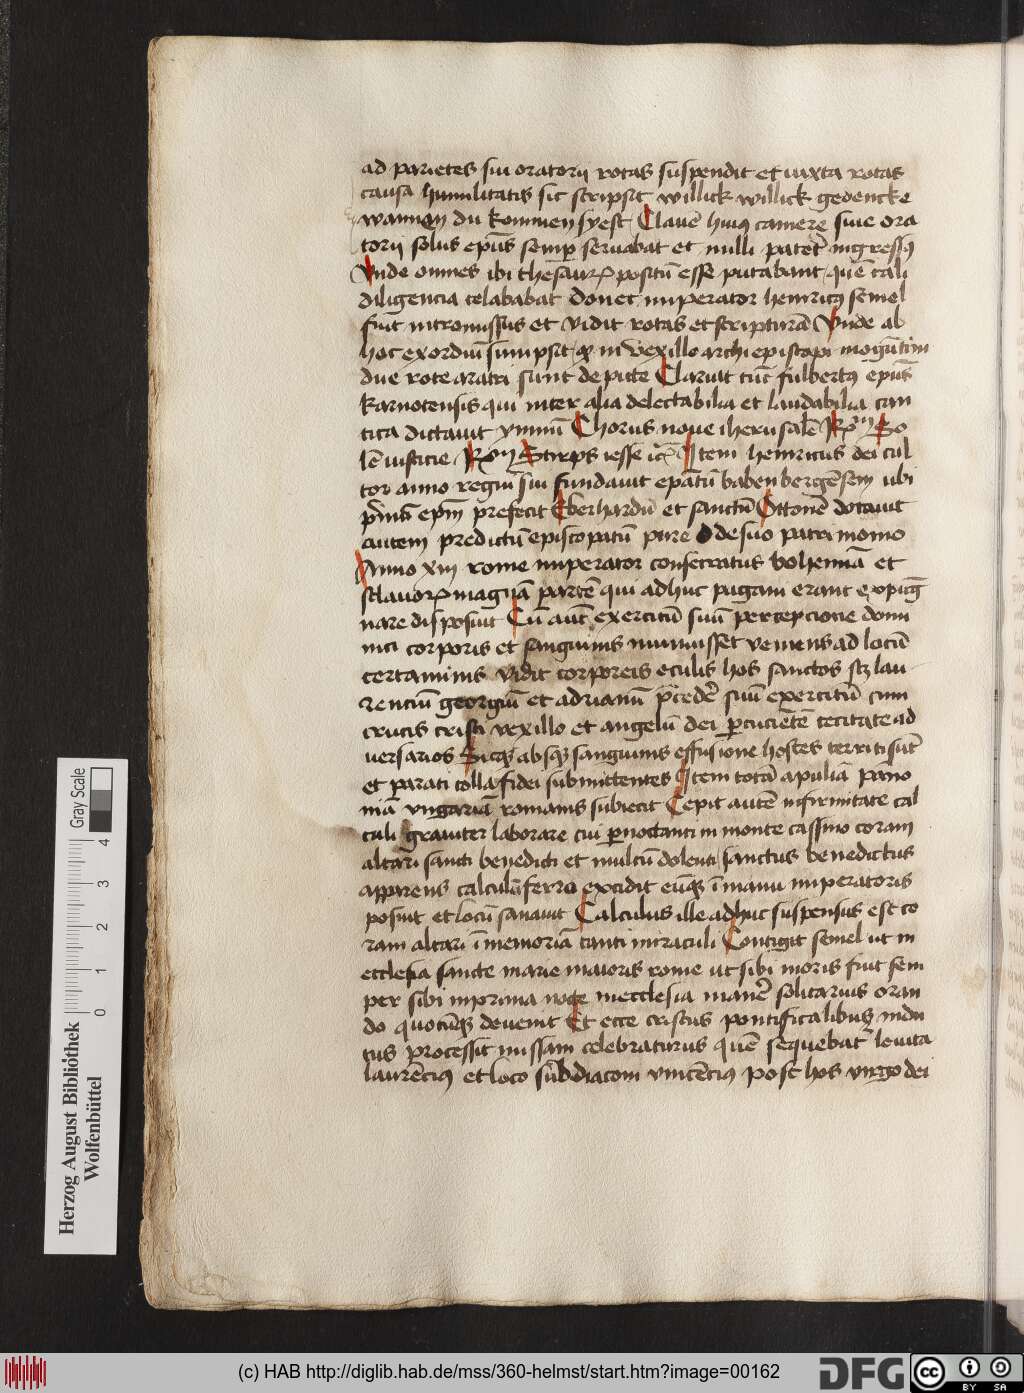 ad parietes sui oratorij rotas suspendit et iuxta rotas
causa humilitatis sic scripsit willick willick gedencke
wannen du kommen syest Clauē huius camere siue ora
torij solus ep̄us semp̄ seruabat et nulli patet̄ ingressus
Vnde omnes ibi thesaur positū esse putabant quē tali
diligencia celababat donec imperator heinricus semel
fuit intromissus et vidit rotas et scripturā Vnde ab
hoc exordiū sumpsit q in vexillo archiepiscopi mogūtini
due rote aratri sunt depicte Claruit tūc fulbertus ep̄us
karnotensis qui inter alia delectabilia et laudabilia can
tica dictauit ymnū Chorus noue iherusalē So
lē iusticie Stirps iesse Item heinricus dei cul
tor anno regni sui fundauit ep̄atū babenbergēsem ubi
p̄mū ep̄m prefecit Eberhardū et sanctū Ottonē dotauit
autem predictū episcopatū pure de suo patrimonio
Anno xiij rome imperator consecratus bohemiā et
sclauor magnā partē qui adhuc pagani erant expug
nare disposuit Cū aūt exercitū suū percepcione domi
nici corporis et sanguinis muniuisset veniens ad locū
certaminis vidit corporeis oculis hos sanctos sz lau
renciū georgiū et adrianū p̄cedē suū exercitū cum
crucis cristi vexillo et angelū dei p̄cucientē cecitate ad
uersarios Sicqz absqz sanguinis effusione hostes territi sūt
et parati colla fidei submittentes Item totā apuliā pāno
niā vngariā romanis subiecit Cepit autē infirmitate cal
culi grauiter laborare cui p̄noctanti in monte cassino coram
altari sancti benedicti et multū dolenti sanctus benedictus
apparens calculū ferro excidit eūqz ī manu imperatoris
posuit et locū sanauit Calculus ille adhuc suspensus est co
ram altari ī memoriā tanti miraculi Contigit semel ut in
ecclesia sancte marie maioris rome ut sibi moris fuit sem
per sibi in prima nocte in ecclesia manē solitarius oran
do quocūqz deuenit Et ecce cristus pontificalibus indu
tus processit missam celebraturus quē sequebat̄ leuita
laurēcius et loco subdiaconi vincēcius post hos virgo dei
Herzog August Bibliothek
Wolfenbüttel
0 1 2 3 4
Gray Scale
(c) HAB http://diglib.hab.de/mss/360-helmst/start.htm?image=00162
DFG
cc BY SA